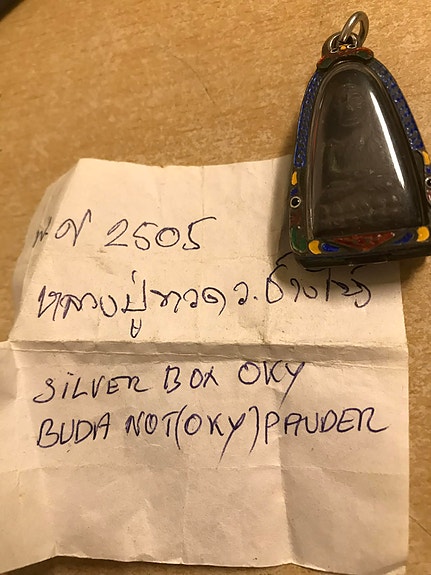 พ ศ 2505
หลวงปู่ทวด ว. ช้างไห้
SILVER BOX OKY
BUDA NOT(OKY)PAUDER